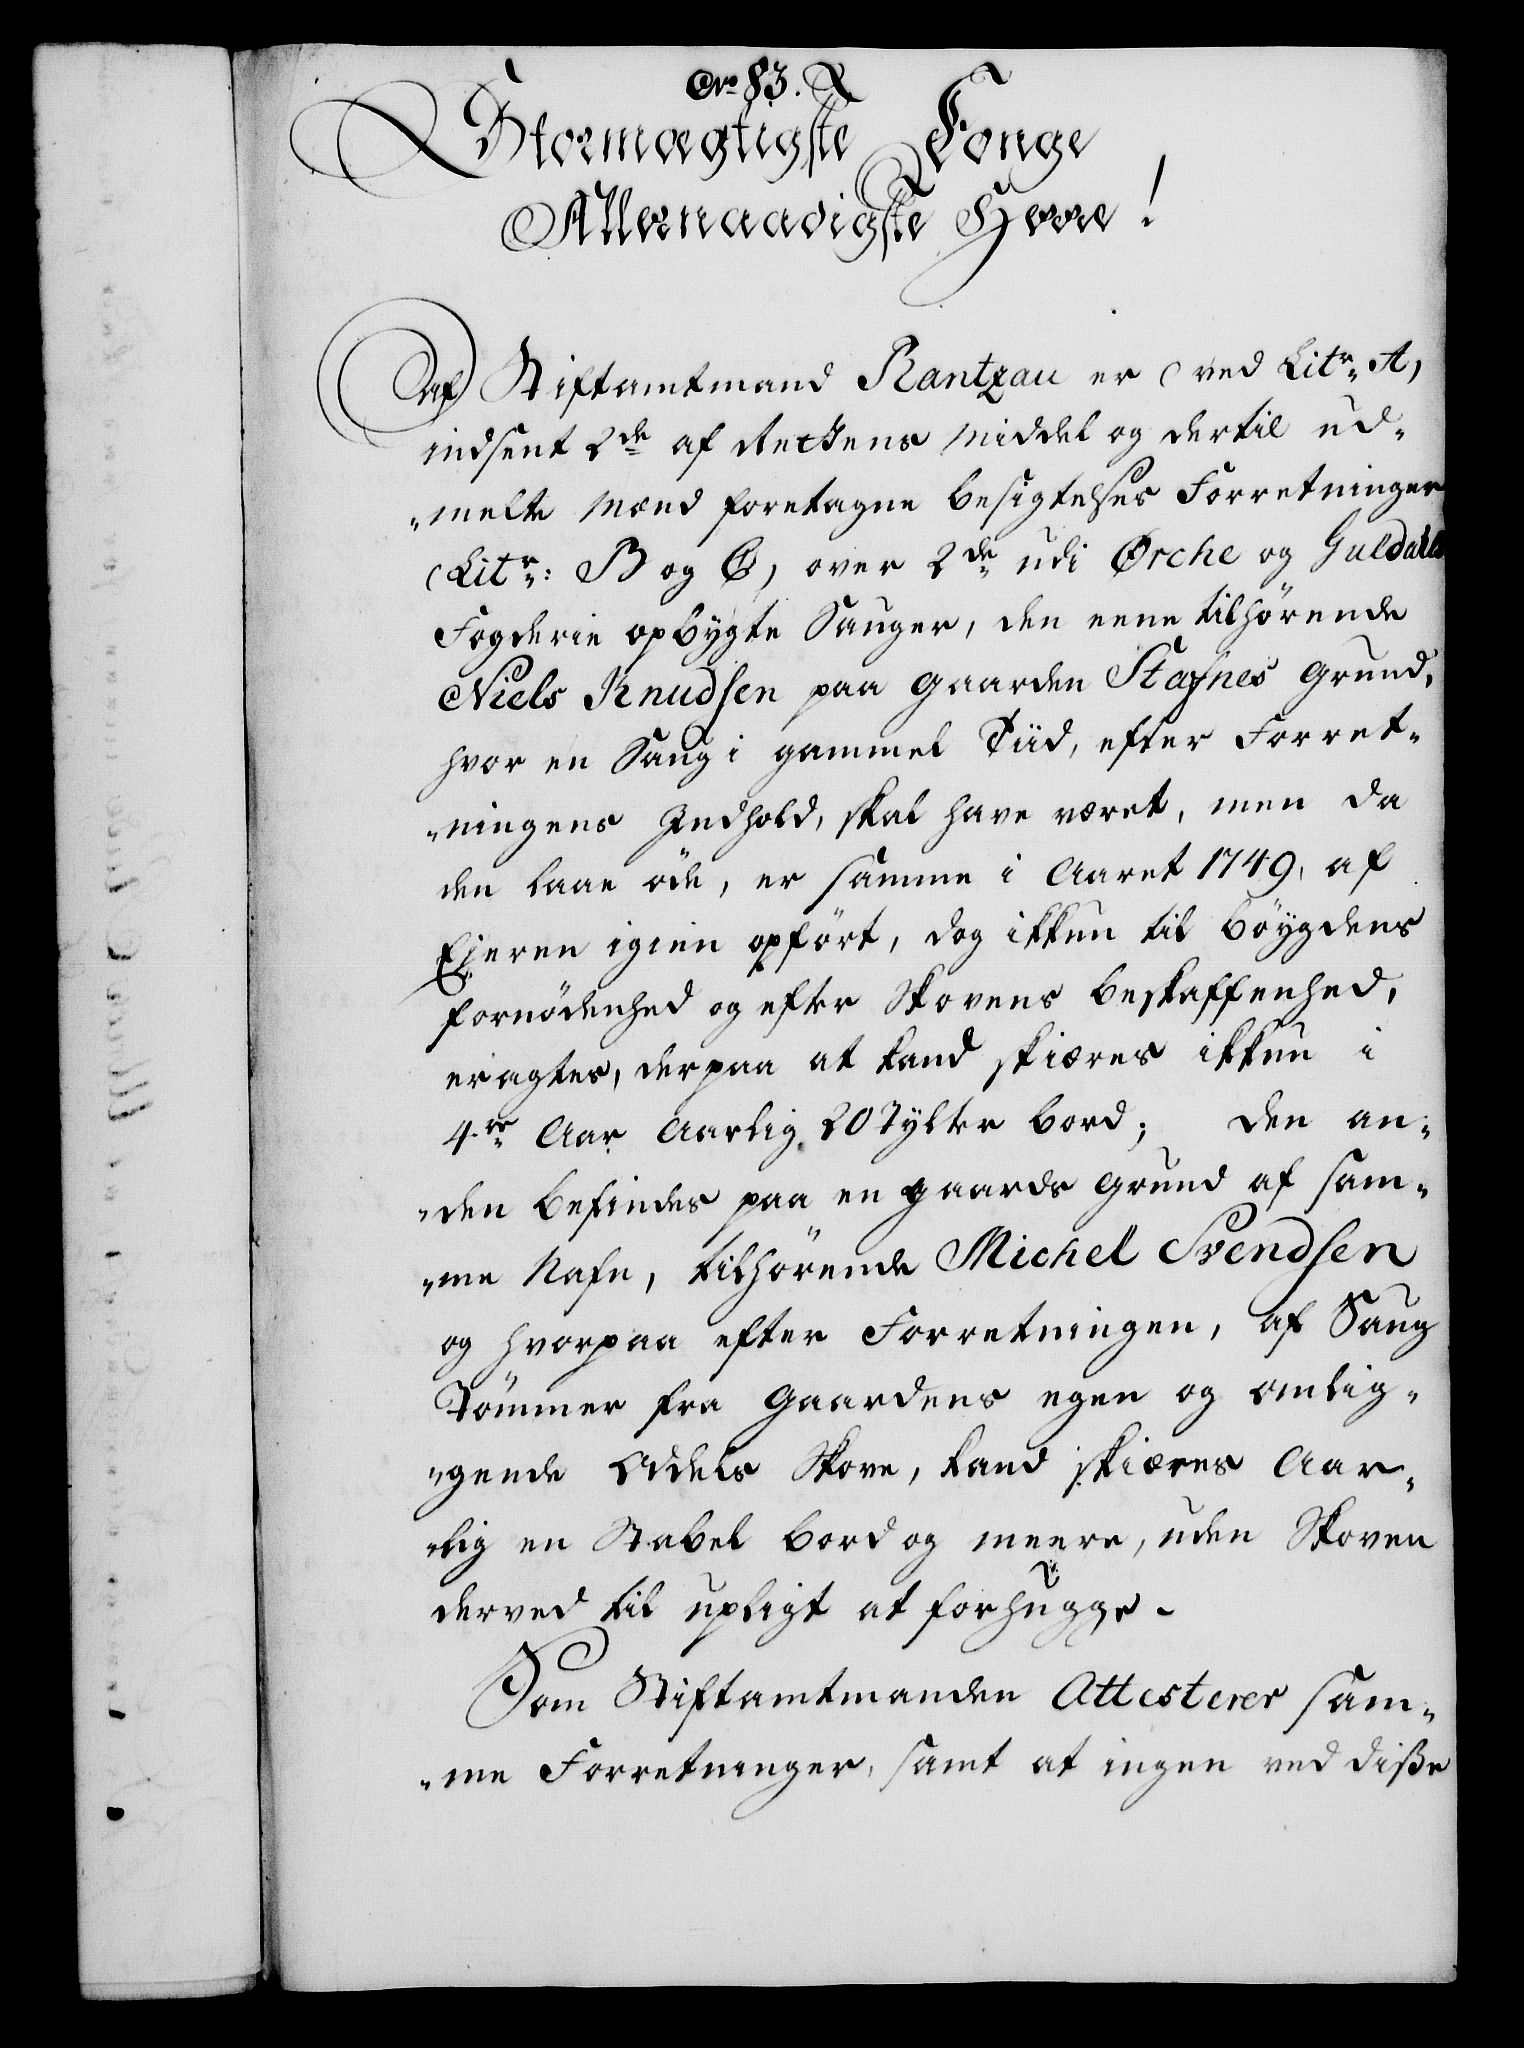 No 83.
Stormægtigste Konge
Allernaadigste Herre!
Af Stiftamtmand Rantzau er (ved Litr. A,)
indsent 2de af Rettens Middel og dertil ud-
-melte Mænd foretagne Besigtelses Forretninger
(Litr: B og C, over 2de udi Ørche og Guldahls
Fogderie opbygte Sauger, den eene tilhørende
Niels Knudsen paa Gaarden Stafnes Grund,
hvor en Saug i gammel Tiid, efter Forret-
-ningens Indhold, skal have været, men da
den laae öde, er samme i Aaret 1749, af
Ejeren igien opført, dog ikkun til Böygdens
fornödenhed og efter Skovens beskaffenhed,
eragtes, derpaa at kand skiæres ikkun i
4re Aar Aarlig 20 Tylter bord; den an-
-den befindes paa en gaards Grund af sam-
-me Nafn, tilhørende Michel Svendsen
og hvorpaa efter Forretningen, af Saug
Tömmer fra Gaardens egen og omlig-
-gende Oddels Skove, kand skiæres Aar-
-lig en Stabel bord og meere, uden Skoven
derved til upligt at forhugge.
Som Stiftamtmanden Attesterer sam-
-me Forretninger, samt at ingen ved diße